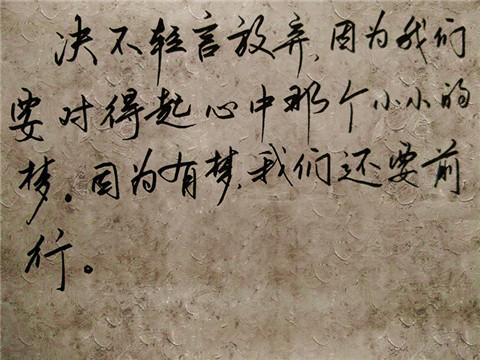 决不轻言放弃,因为我们
要对得起心中那个小小的
梦。因为有梦,我们还要前
行。